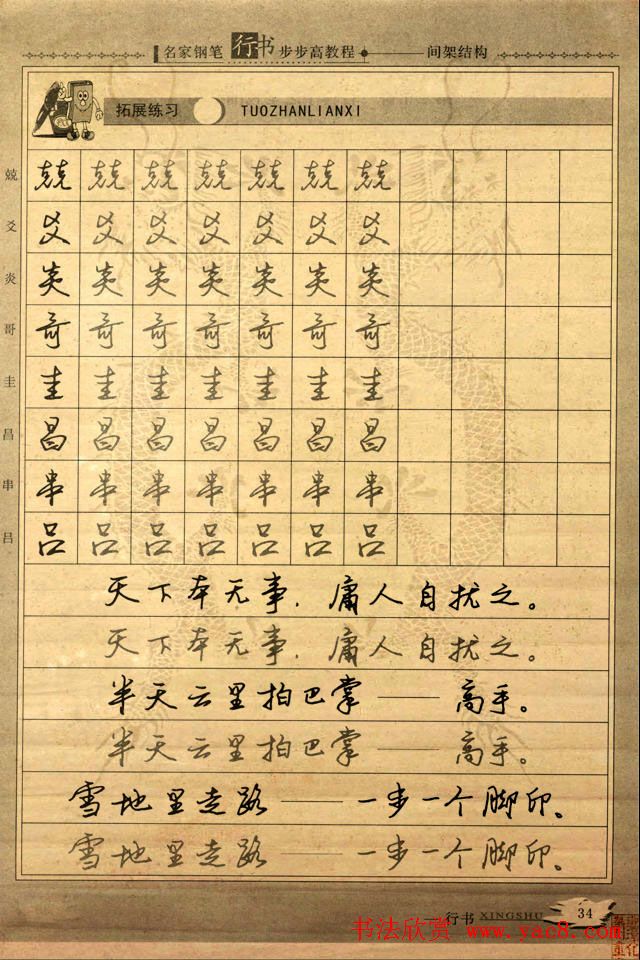 名家钢笔行书步步高教程 间架结构
拓展练习 TUOZHANLIANXI
兢 兢 兢 兢 兢 兢 兢 兢
爻 爻 爻 爻 爻 爻 爻 爻
炎 炎 炎 炎 炎 炎 炎 炎
哥 哥 哥 哥 哥 哥 哥 哥
圭 圭 圭 圭 圭 圭 圭 圭
昌 昌 昌 昌 昌 昌 昌 昌
串 串 串 串 串 串 串 串
吕 吕 吕 吕 吕 吕 吕 吕
天下本无事，庸人自扰之。
天下本无事，庸人自扰之。
半天云里拍巴掌——高手。
半天云里拍巴掌——高手。
雪地里走路——一步一个脚印。
雪地里走路 一步一个脚印。
行书 XINGSHU 34
书法欣赏 www.yac8.com